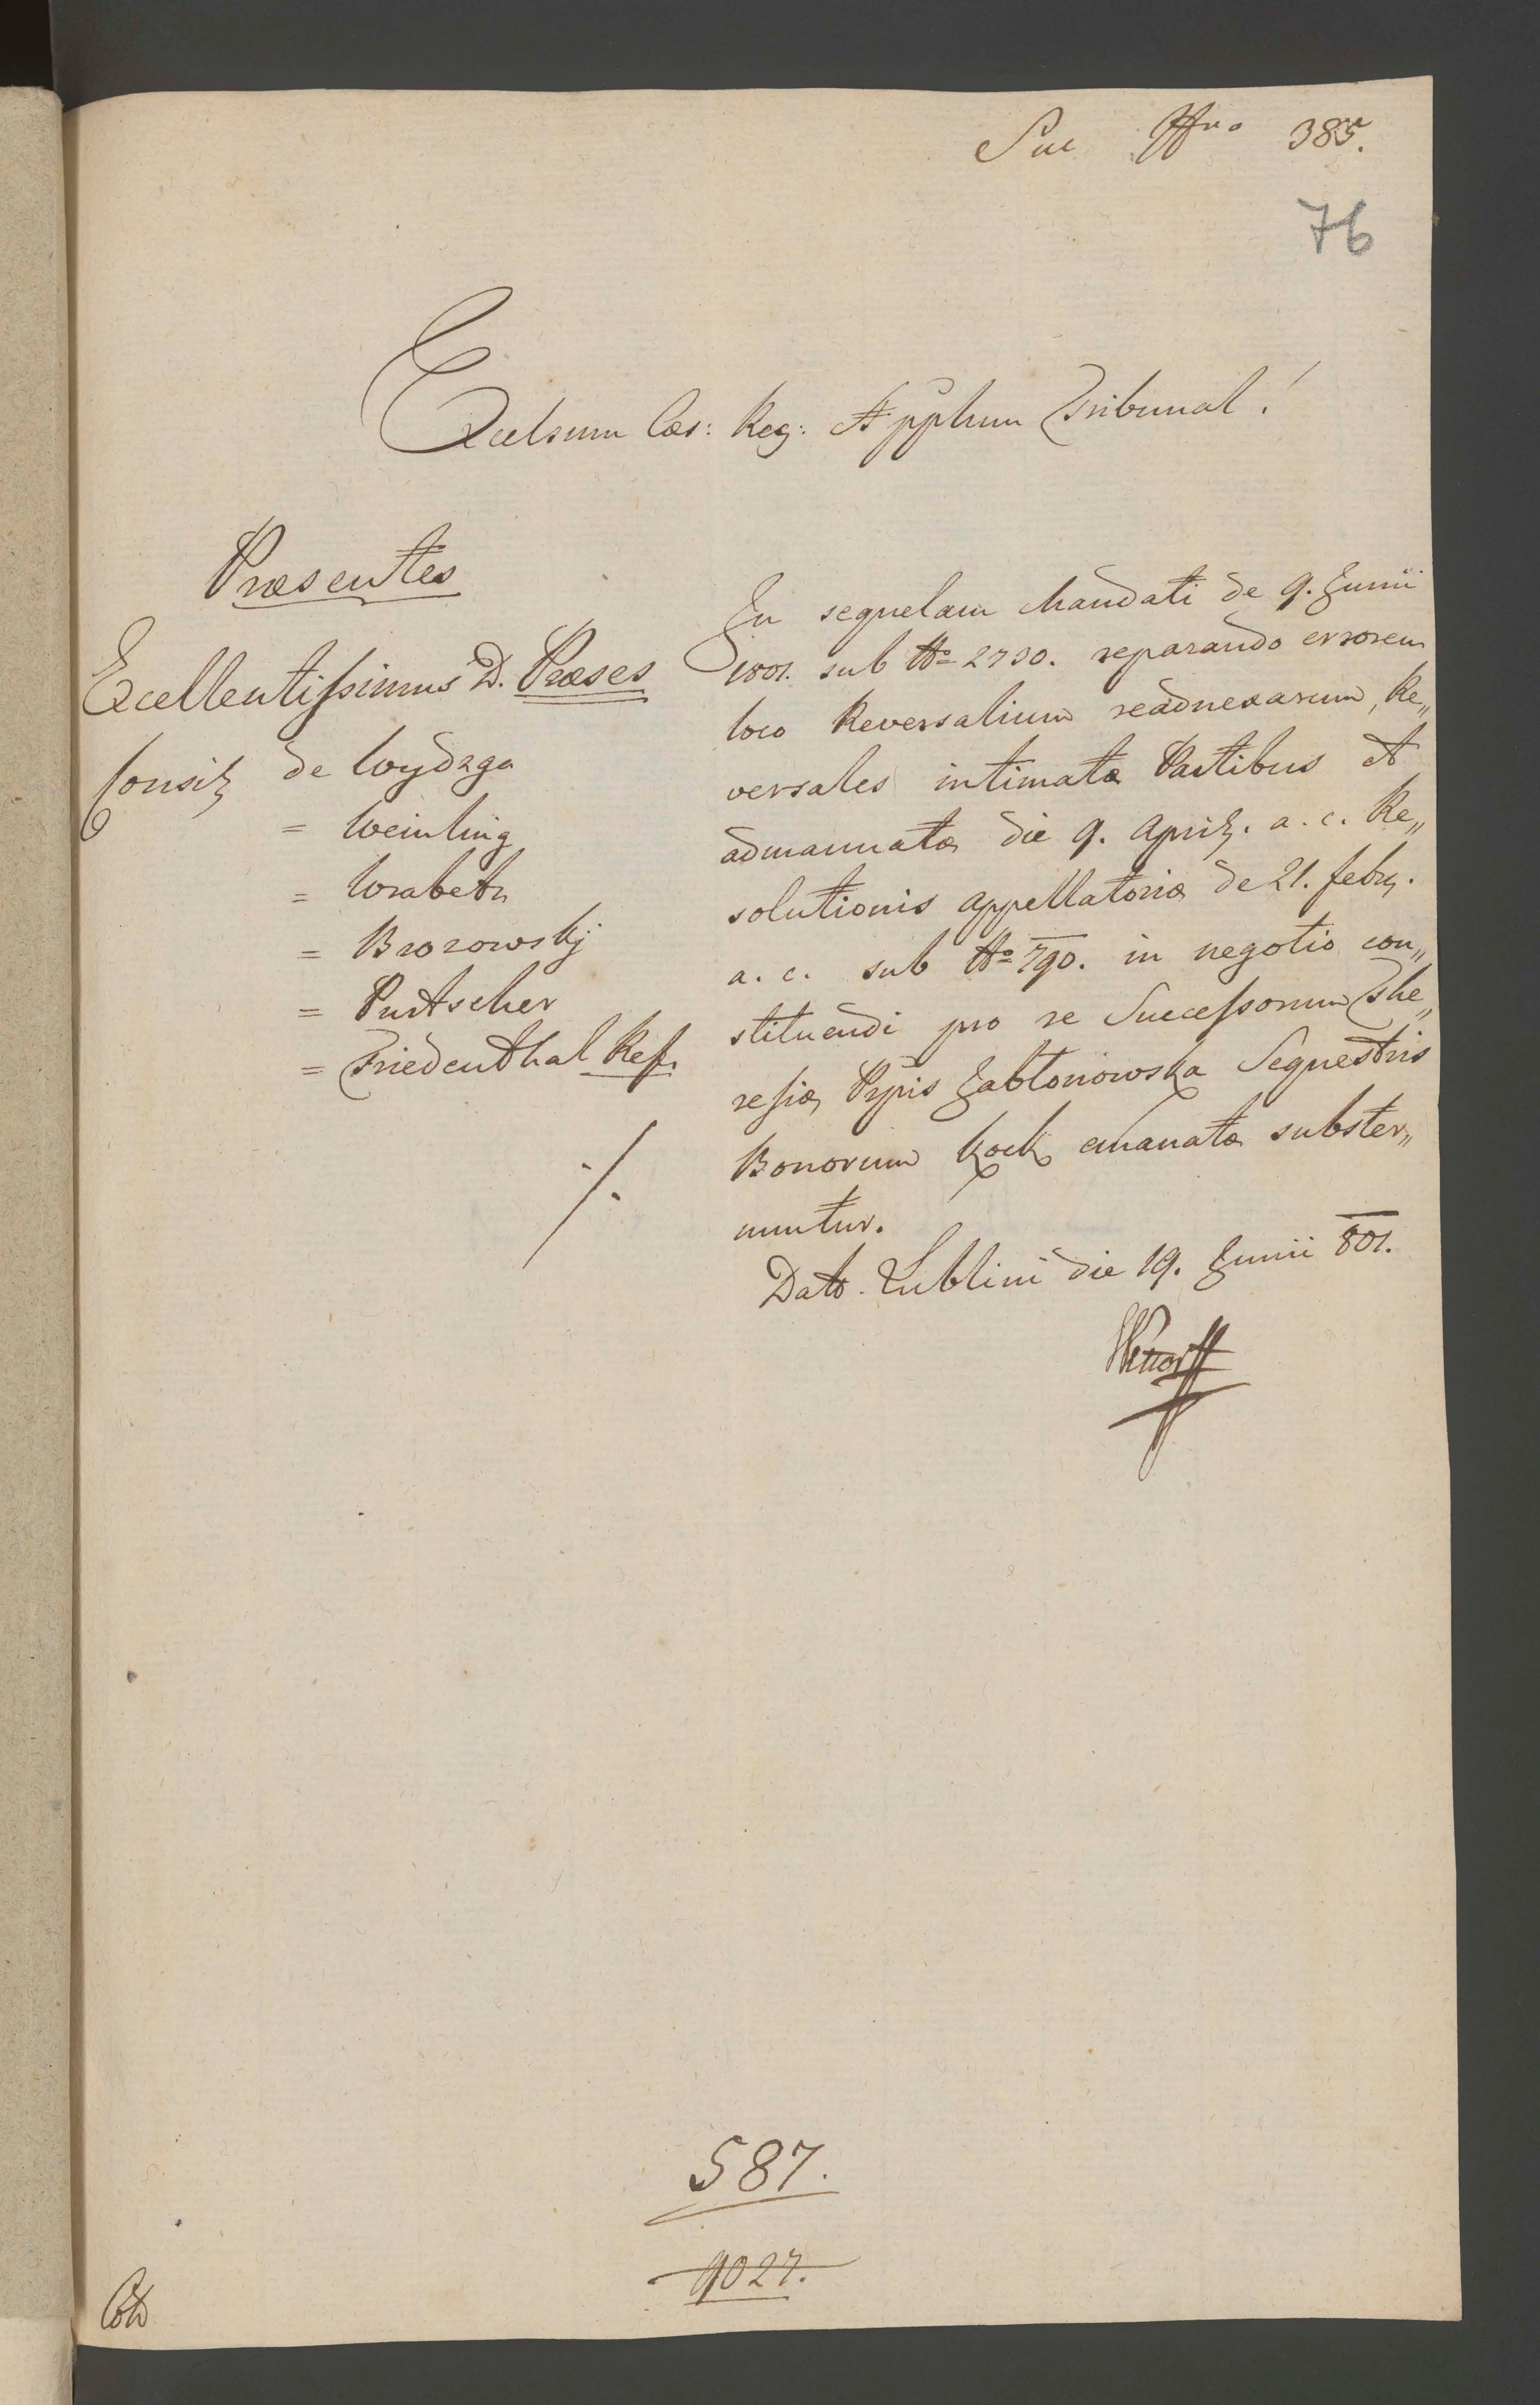 Suc Nro 385.
76
Excelsum Cæs: Reg: Applum Tribunal!
Præsentes
Excellentissimus D. Præses
Consil de Woydaga
= Weinling
= Wrabetz
= Brozowskj
= Purtscher
= Friedenthal Ref.
./.
In sequelam Mandati de 9. Junii
1801. sub No 2730. reparando errorem
loco Reversalium readnexarum, Re„
versales intimatæ Partibus et
admanuatæ die 9. April. a. c. Re„
solutionis appellatoriæ de 21. febr.
a. c. sub No 790. in negotio con„
stituendi pro re Successorum The„
resiæ Ppis Jabłonowska Sequestris
Bonorum Kock emanatæ subster„
nuntur.
Dato Lublini die 19. Junii 801.
587.
9027.